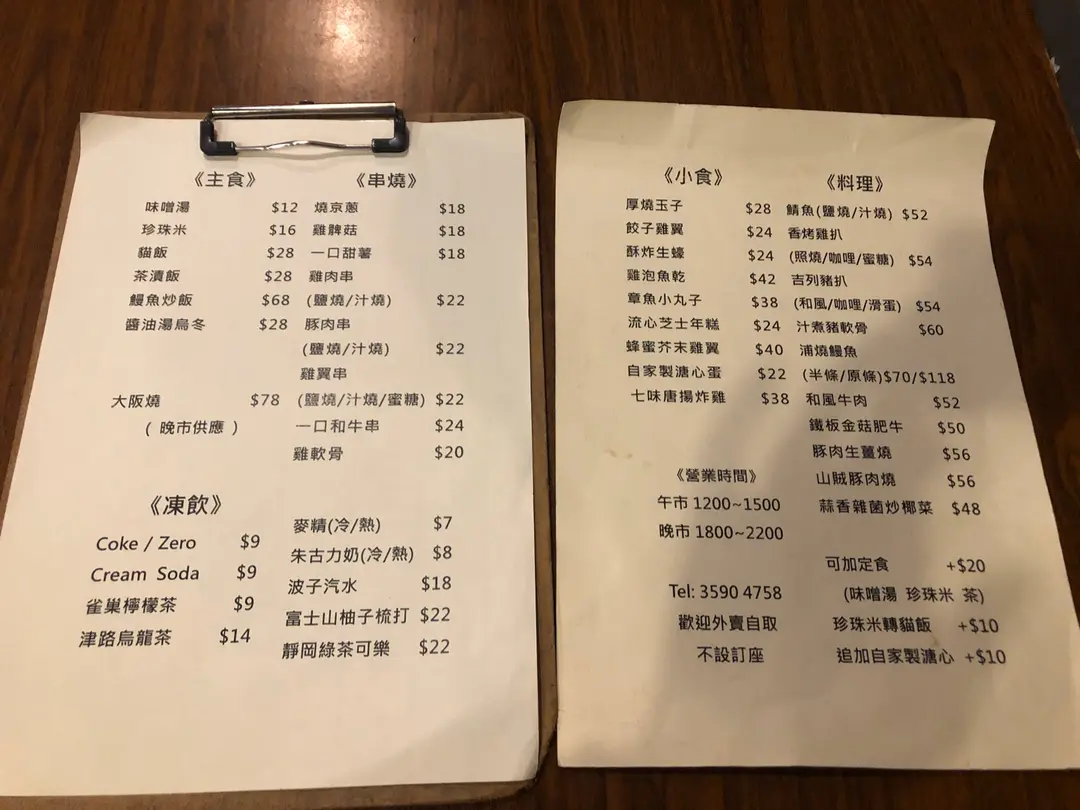 《主食》
味噌湯 $12
珍珠米 $16
貓飯 $28
茶漬飯 $28
鰻魚炒飯 $68
醬油湯烏冬 $28
大阪燒 $78
( 晚市供應 )
《串燒》
燒京蔥 $18
雞髀菇 $18
一口甜薯 $18
雞肉串
(鹽燒/汁燒) $22
豚肉串
(鹽燒/汁燒) $22
雞翼串
(鹽燒/汁燒/蜜糖) $22
一口和牛串 $24
雞軟骨 $20
《凍飲》
Coke / Zero $9
Cream Soda $9
雀巢檸檬茶 $9
津路烏龍茶 $14
麥精(冷/熱) $7
朱古力奶(冷/熱) $8
波子汽水 $18
富士山柚子梳打 $22
靜岡綠茶可樂 $22
《小食》
厚燒玉子 $28
餃子雞翼 $24
酥炸生蠔 $24
雞泡魚乾 $42
章魚小丸子 $38
流心芝士年糕 $24
蜂蜜芥末雞翼 $40
自家製溏心蛋 $22
七味唐揚炸雞 $38
《營業時間》
午市 1200~1500
晚市 1800~2200
Tel: 3590 4758
歡迎外賣自取
不設訂座
《料理》
鯖魚(鹽燒/汁燒) $52
香烤雞扒
(照燒/咖哩/蜜糖) $54
吉列豬扒
(和風/咖哩/滑蛋) $54
汁煮豬軟骨 $60
浦燒鰻魚
(半條/原條)$70/$118
和風牛肉 $52
鐵板金菇肥牛 $50
豚肉生薑燒 $56
山賊豚肉燒 $56
蒜香雜菌炒椰菜 $48
可加定食 +$20
(味噌湯 珍珠米 茶)
珍珠米轉貓飯 +$10
追加自家製溏心 +$10